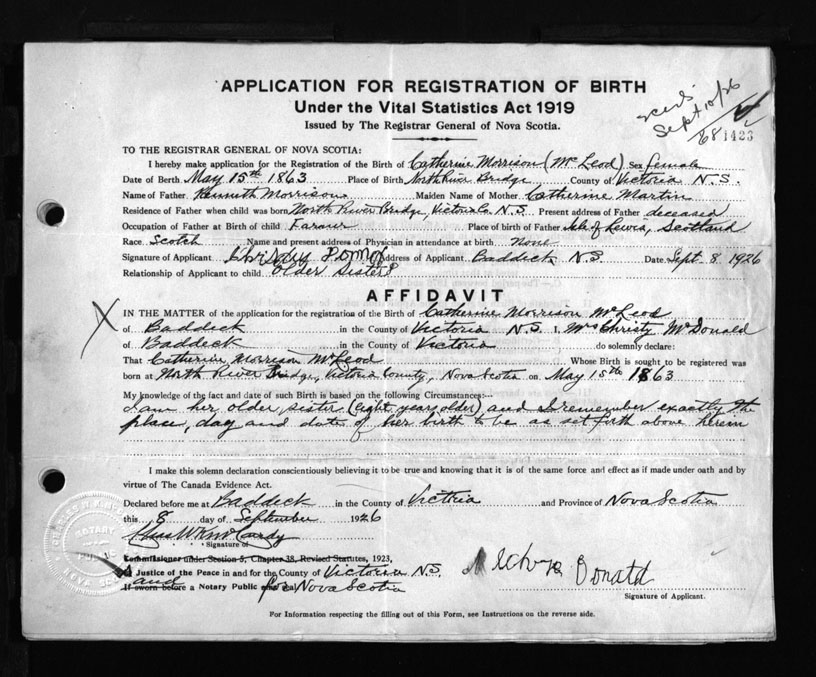 APPLICATION FOR REGISTRATION OF BIRTH
Under the Vital Statistics Act 1919
Issued by The Registrar General of Nova Scotia.
Sept 10/26
1423
TO THE REGISTRAR GENERAL OF NOVA SCOTIA:
I hereby make application for the Registration of the Birth of Catherine Morrison (McLeod) Sex female
Date of Birth May 15th 1863 Place of Birth North River Bridge County of Victoria N.S.
Name of Father Kenneth Morrison Maiden Name of Mother Catherine Martin
Residence of Father when child was born North River Bridge, Victoria Co. N.S. Present address of Father deceased
Occupation of Father at Birth of child Farmer Place of birth of Father Isle of Lewis, Scotland
Race Scotch Name and present address of Physician in attendance at birth none
Signature of Applicant Address of Applicant Baddeck, N.S. Date Sept. 8. 1926
Relationship of Applicant to child Older Sister
AFFIDAVIT
IN THE MATTER of the application for the registration of the Birth of Catherine Morrison McLeod
of Baddeck in the County of Victoria N.S. I, Mrs Christy McDonald
of Baddeck in the County of Victoria do solemnly declare:
That Catherine Morrison McLeod Whose Birth is sought to be registered was
born at North River Bridge, Victoria County, Nova Scotia on May 15th 1863
My knowledge of the fact and date of such Birth is based on the following Circumstances:—
I am her older sister (eight years older) and I remember exactly the
place, day and date of her birth to be as set forth above herein
I make this solemn declaration conscientiously believing it to be true and knowing that it is of the same force and effect as if made under oath and by
virtue of The Canada Evidence Act.
Declared before me at Baddeck in the County of Victoria and Province of Nova Scotia
this 8 day of September 1926
Signature of
Commissioner under Section 5, Chapter 38, Revised Statutes, 1923,
Justice of the Peace in and for the County of Victoria N.S.
and
If sworn before a Notary Public for Nova Scotia
Donald
Signature of Applicant.
NOTARY
NOVA SCOTIA
For Information respecting the filling out of this Form, see Instructions on the reverse side.